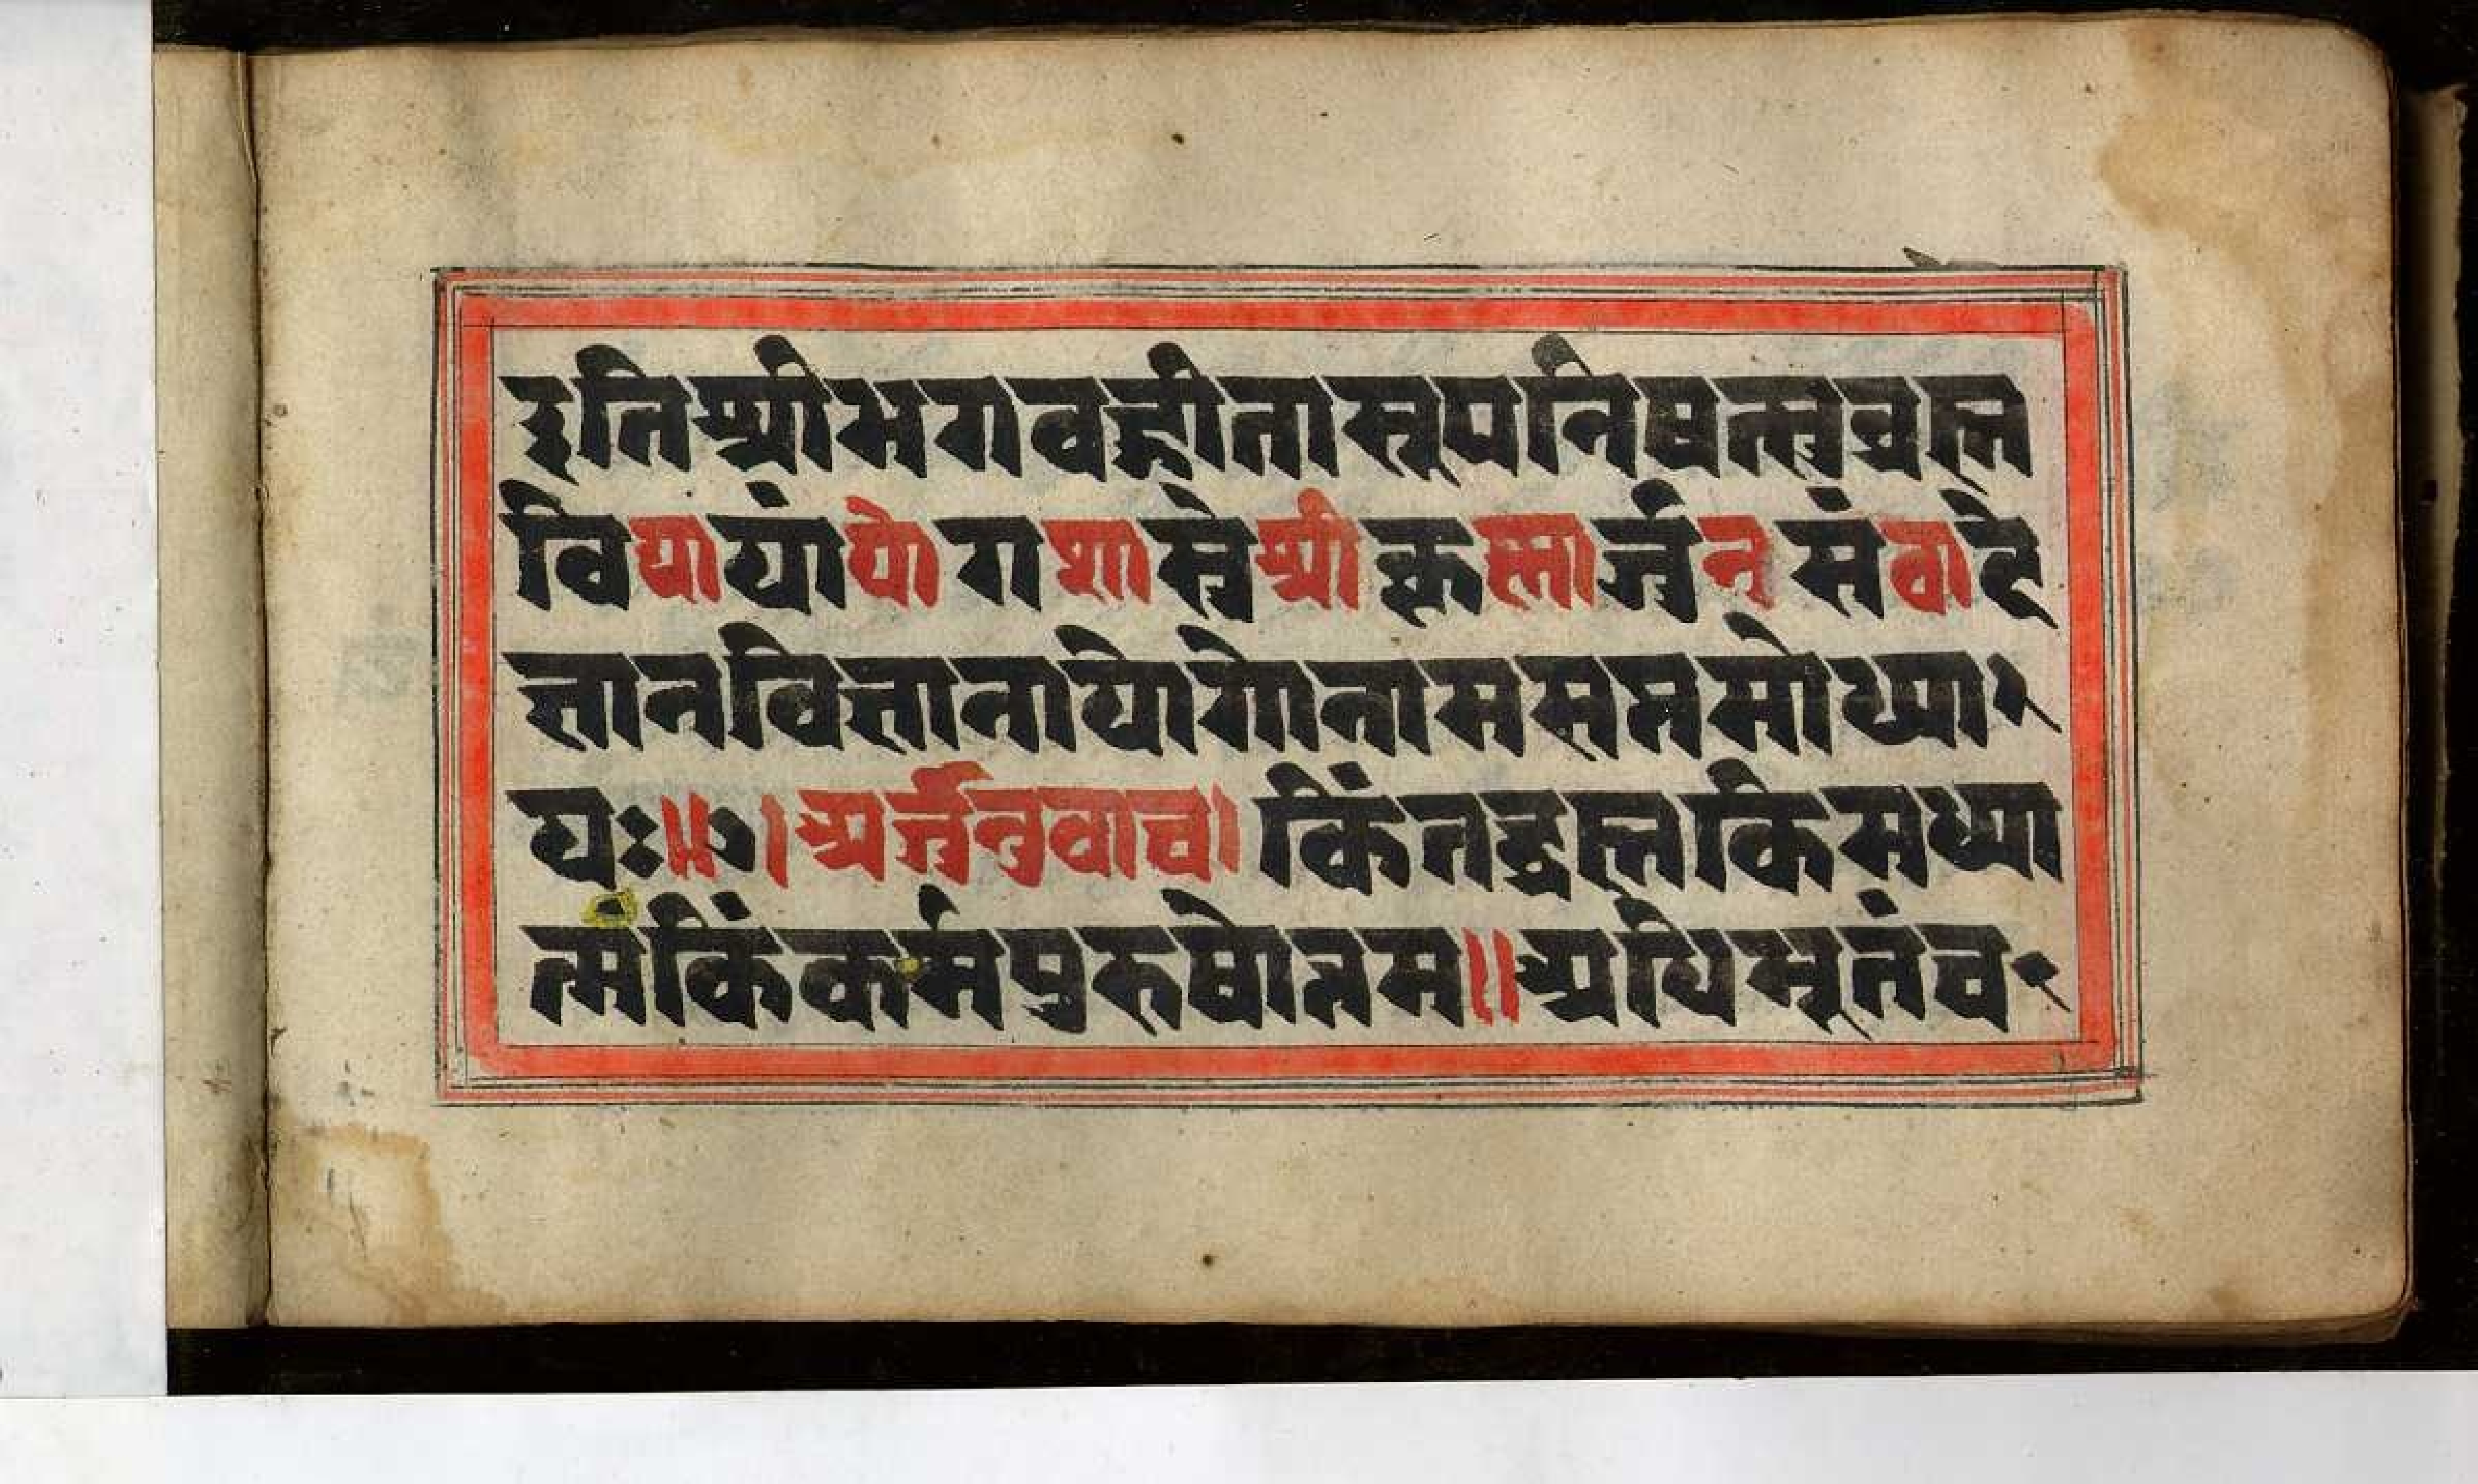 इतिश्रीभगवद्गीतासूपनिषत्सुब्रह्म
विद्यायांयोगशास्त्रेश्रीकृष्णार्जुनसंवादे
ज्ञानविज्ञानायोगोनामसप्तमोध्या
यः॥७।अर्जुनउवाच।किंतद्ब्रह्मकिमध्या
त्मंकिंकर्मपुरुषोत्तम॥अधिभूतंच